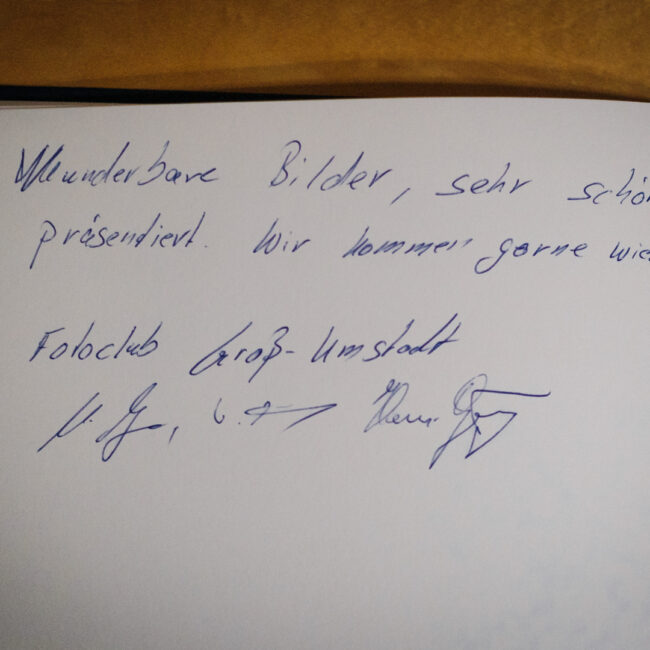 Wunderbare Bilder, sehr schön
präsentiert. Wir kommen gerne wied
Fotoclub Groß-Umstadt